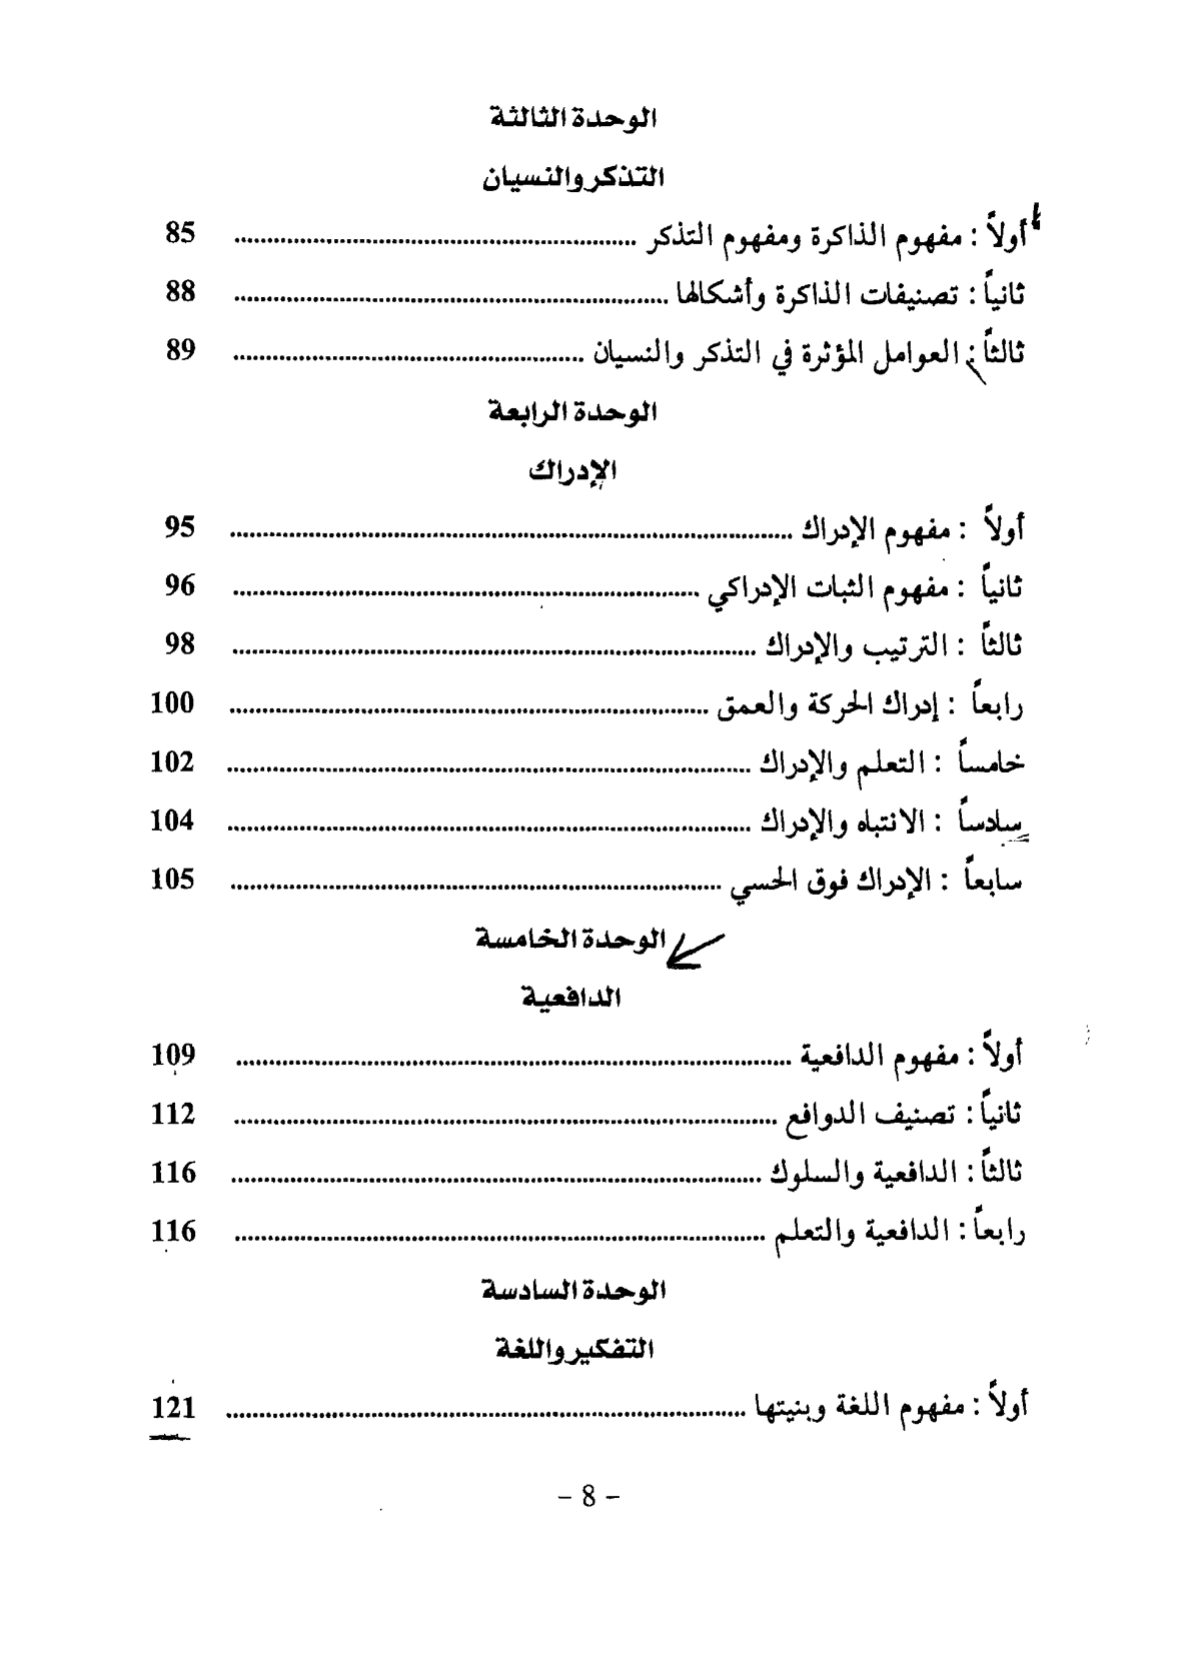 الوحدة الثالثة
التذكر والنسيان
أولاً : مفهوم الذاكرة ومفهوم التذكر ............................................................ 85
ثانياً : تصنيفات الذاكرة وأشكالها ................................................................. 88
ثالثاً : العوامل المؤثرة في التذكر والنسيان ..................................................... 89
الوحدة الرابعة
الإدراك
أولاً : مفهوم الإدراك .................................................................................... 95
ثانياً : مفهوم الثبات الإدراكي ...................................................................... 96
ثالثاً : الترتيب والإدراك .............................................................................. 98
رابعاً : إدراك الحركة والعمق ....................................................................... 100
خامساً : التعلم والإدراك .............................................................................. 102
سادساً : الانتباه والإدراك .............................................................................. 104
سابعاً : الإدراك فوق الحسي ......................................................................... 105
الوحدة الخامسة
الدافعية
أولاً : مفهوم الدافعية .................................................................................... 109
ثانياً : تصنيف الدوافع .................................................................................. 112
ثالثاً : الدافعية والسلوك ................................................................................ 116
رابعاً : الدافعية والتعلم ................................................................................ 116
الوحدة السادسة
التفكير واللغة
أولاً : مفهوم اللغة وبنيتها .............................................................................. 121
– 8 –